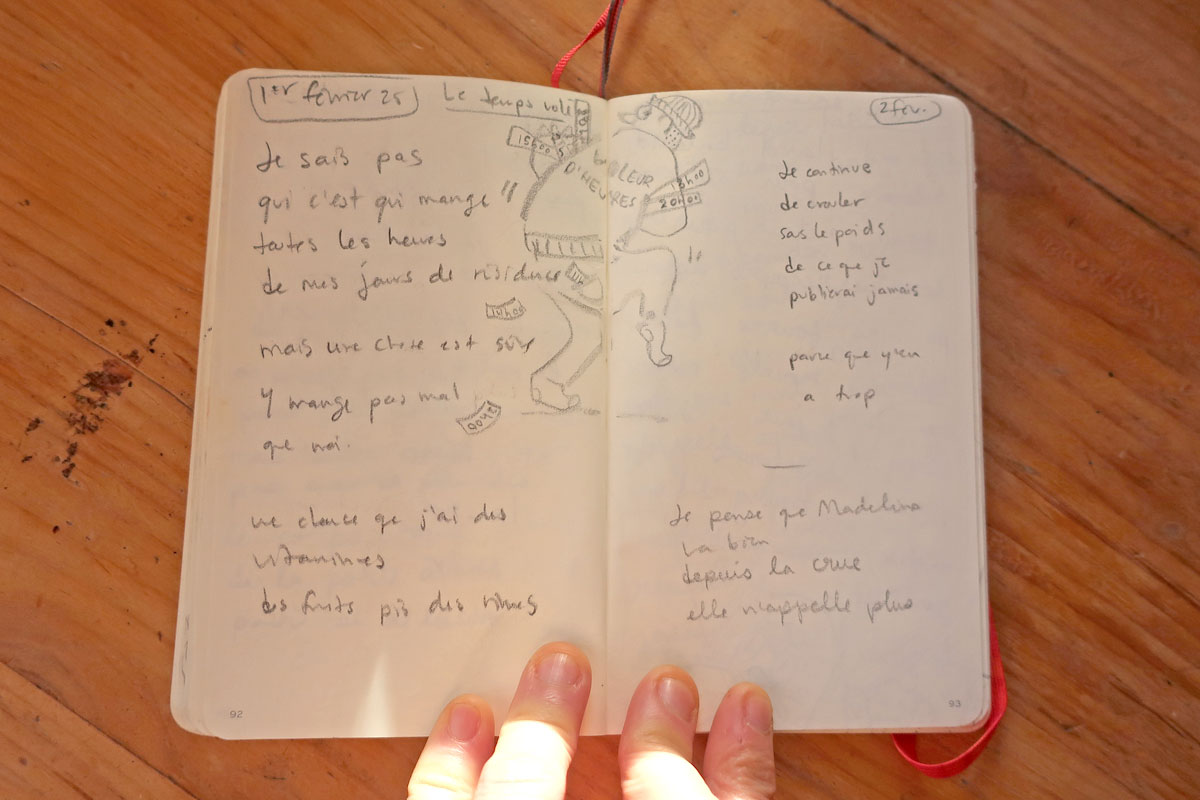 1er février 25
Le temps volé
Je sais pas
qui c'est qui mange
toutes les heures
de mes jours de résidence
mais une chose est sûre
y mange pas mal
que moi.
une chance que j'ai des
vitamines
des fruits pis des rimes
15h00
VOLEUR
D'HEURES
13h00
20h00
10h00
2h00
92
2 fév.
Je continue
de crouler
sous le poids
de ce que je
publierai jamais
parce que y'en
a trop
Je pense que Madelina
va bien
depuis la crue
elle m'appelle plus
93